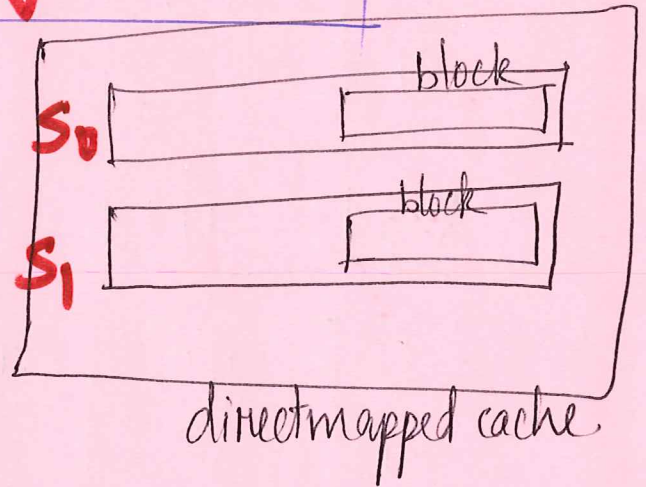 block
S₀
block
S₁
directmapped cache